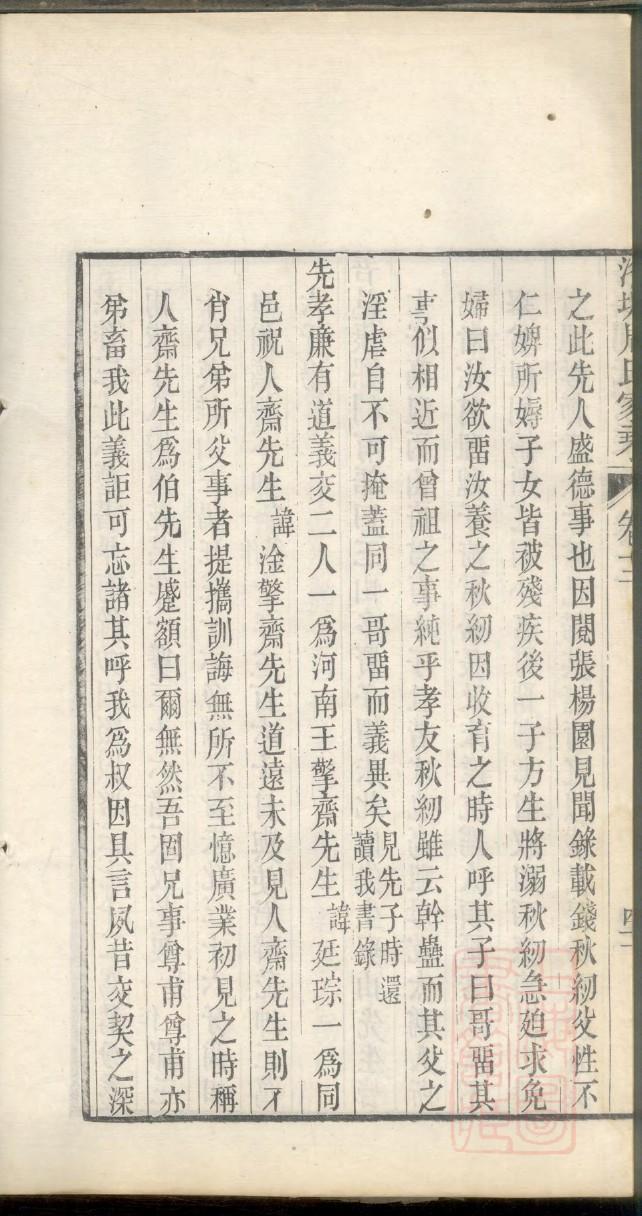 周氏家乘 卷十三
之此先人盛德事也因閱張楊園見聞錄載錢秋紉父性不
仁婢所娠子女皆被殘疾後一子方生將溺秋紉急廹求免
婦曰汝欲畱汝養之秋紉因收育之時人呼其子曰哥畱其
事似相近而曾祖之事純乎孝友秋紉雖云幹蠱而其父之
淫虐自不可掩蓋同一哥畱而義異矣見先子時還讀我書錄
先孝廉有道義交二人一爲河南王擎齋先生諱廷琮一爲同
邑祝人齋先生諱淦擎齋先生道遠未及見人齋先生則不
肖兄弟所父事者提攜訓誨無所不至憶廣業初見之時稱
人齋先生爲伯先生蹙額曰爾無然吾固兄事尊甫尊甫亦
弟畜我此義詎可忘諸其呼我爲叔因具言夙昔交契之深